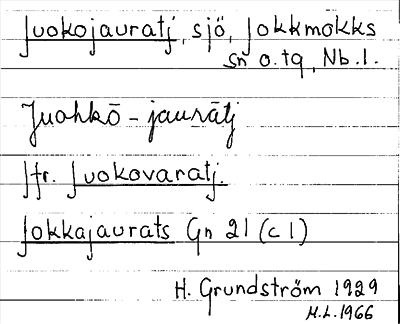 Juokojauratj, sjö, Jokkmokks
sn o. tq, Nb. l.
Juohkō - jaurātj
Jfr. Juokovaratj.
Jokkajaurats Gn 21 (c 1)
H. Grundström 1929
M.L. 1966